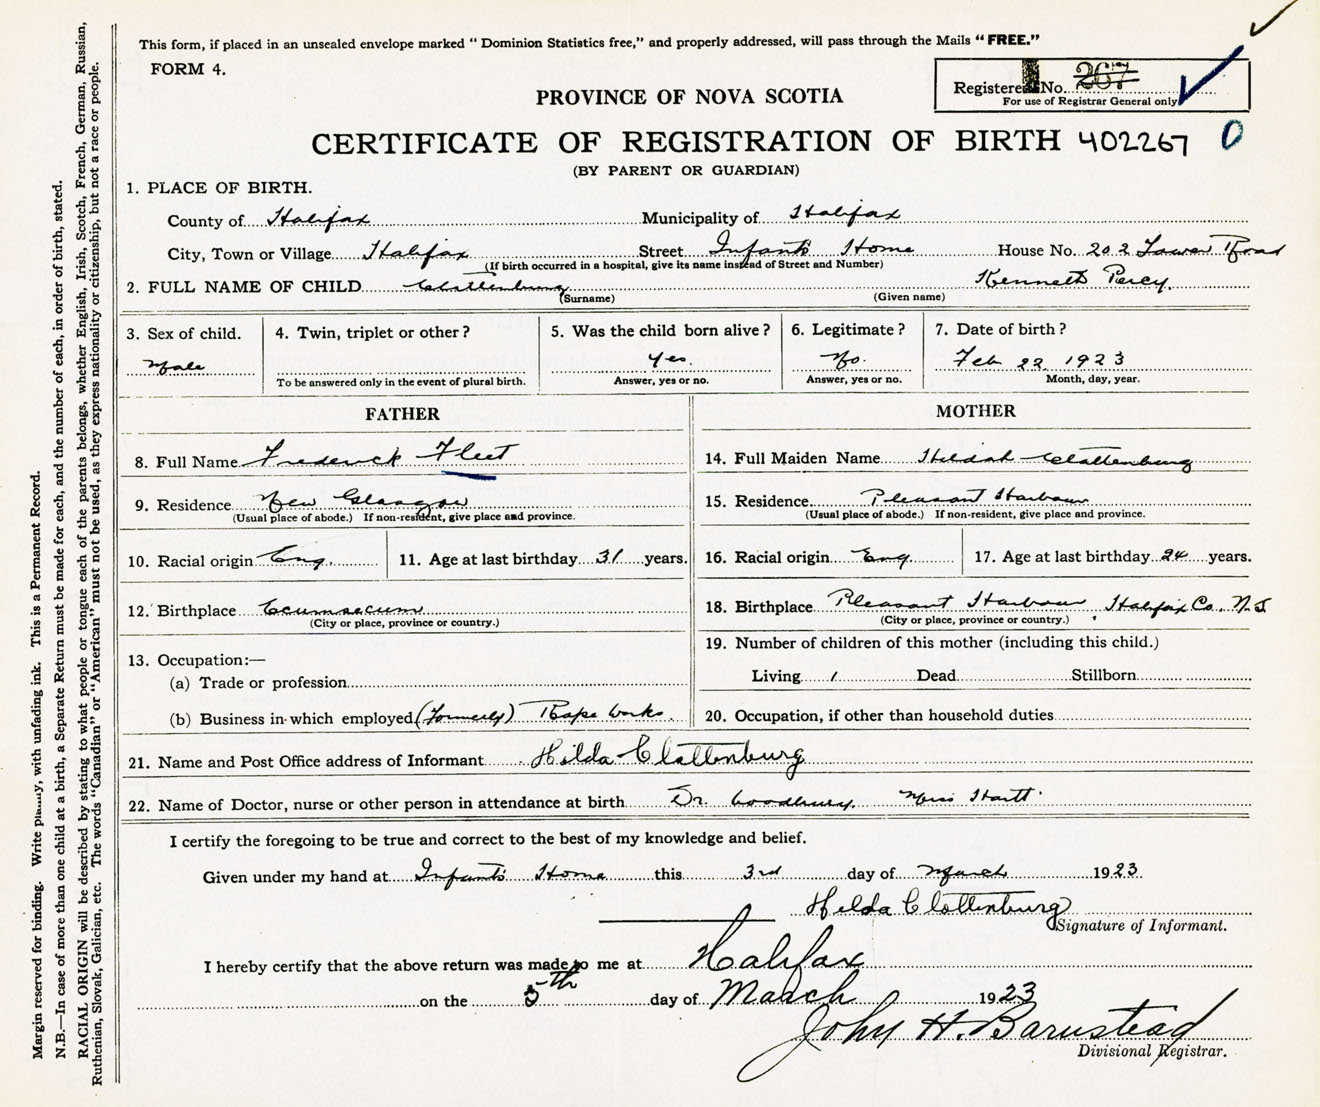 This form, if placed in an unsealed envelope marked " Dominion Statistics free," and properly addressed, will pass through the Mails "FREE."
FORM 4.
Registered No. 267
For use of Registrar General only
PROVINCE OF NOVA SCOTIA
CERTIFICATE OF REGISTRATION OF BIRTH 402267 0
(BY PARENT OR GUARDIAN)
1. PLACE OF BIRTH.
County of Halifax Municipality of Halifax
City, Town or Village Halifax Street Infants Home House No. 202 Tower Road
(If birth occurred in a hospital, give its name instead of Street and Number)
2. FULL NAME OF CHILD Clattenburg Kenneth Percy
(Surname) (Given name)
3. Sex of child. 4. Twin, triplet or other? 5. Was the child born alive? 6. Legitimate? 7. Date of birth?
Male Yes. No. Feb 22, 1923
To be answered only in the event of plural birth. Answer, yes or no. Answer, yes or no. Month, day, year.
FATHER MOTHER
8. Full Name Frederick Fleet 14. Full Maiden Name Hildah Clattenburg
9. Residence New Glasgow 15. Residence Pleasant Harbour
(Usual place of abode.) If non-resident, give place and province. (Usual place of abode.) If non-resident, give place and province.
10. Racial origin Eng. 11. Age at last birthday 31 years. 16. Racial origin Eng 17. Age at last birthday 24 years.
12. Birthplace Ecumsecum 18. Birthplace Pleasant Harbour Halifax Co. N.S
(City or place, province or country.) (City or place, province or country.)
13. Occupation:— 19. Number of children of this mother (including this child.)
(a) Trade or profession Living 1 Dead Stillborn
(b) Business in which employed (formerly) Rope Works. 20. Occupation, if other than household duties
21. Name and Post Office address of Informant Hilda Clattenburg
22. Name of Doctor, nurse or other person in attendance at birth Dr. Woodbury. Miss Hartt
I certify the foregoing to be true and correct to the best of my knowledge and belief.
Given under my hand at Infants Home this 3rd day of March 1923.
Hilda Clattenburg
Signature of Informant.
I hereby certify that the above return was made to me at Halifax
on the 5th day of March 1923
John H. Barnstead
Divisional Registrar.
Margin reserved for binding. Write plainly, with unfading ink. This is a Permanent Record.
N.B.—In case of more than one child at a birth, a Separate Return must be made for each, and the number of each, in order of birth, stated.
RACIAL ORIGIN will be described by stating to what people or tongue each of the parents belongs, whether English, Irish, Scotch, French, German, Russian,
Ruthenian, Slovak, Galician, etc. The words "Canadian" or "American" must not be used, as they express nationality or citizenship, but not a race or people.